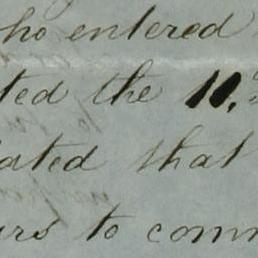 ho entered
ted the 11.
ated that
urs to comm